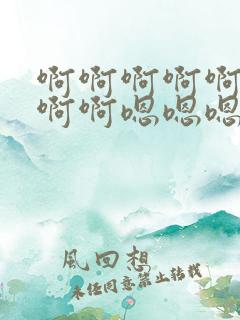 啊啊啊啊啊
啊啊嗯嗯嗯
風回想
未任同意禁止转载